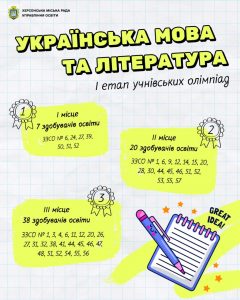 ХЕРСОНСЬКА МІСЬКА РАДА
УПРАВЛІННЯ ОСВІТИ
УКРАЇНСЬКА МОВА
ТА ЛІТЕРАТУРА
І етап учнівських олімпіад
1
І місце
7 здобувачів освіти
ЗЗСО № 6, 24, 27, 39,
50, 51, 52
2
ІІ місце
20 здобувачів освіти
ЗЗСО № 1, 6, 9, 12, 14, 15, 20,
28, 30, 44, 45, 46, 51, 52,
53, 55, 57
3
ІІІ місце
38 здобувачів освіти
ЗЗСО № 1, 3, 4, 6, 11, 12, 20, 26,
27, 31, 32, 38, 41, 44, 45, 46, 47,
48, 51, 52, 54, 55, 56
GREAT
IDEA!